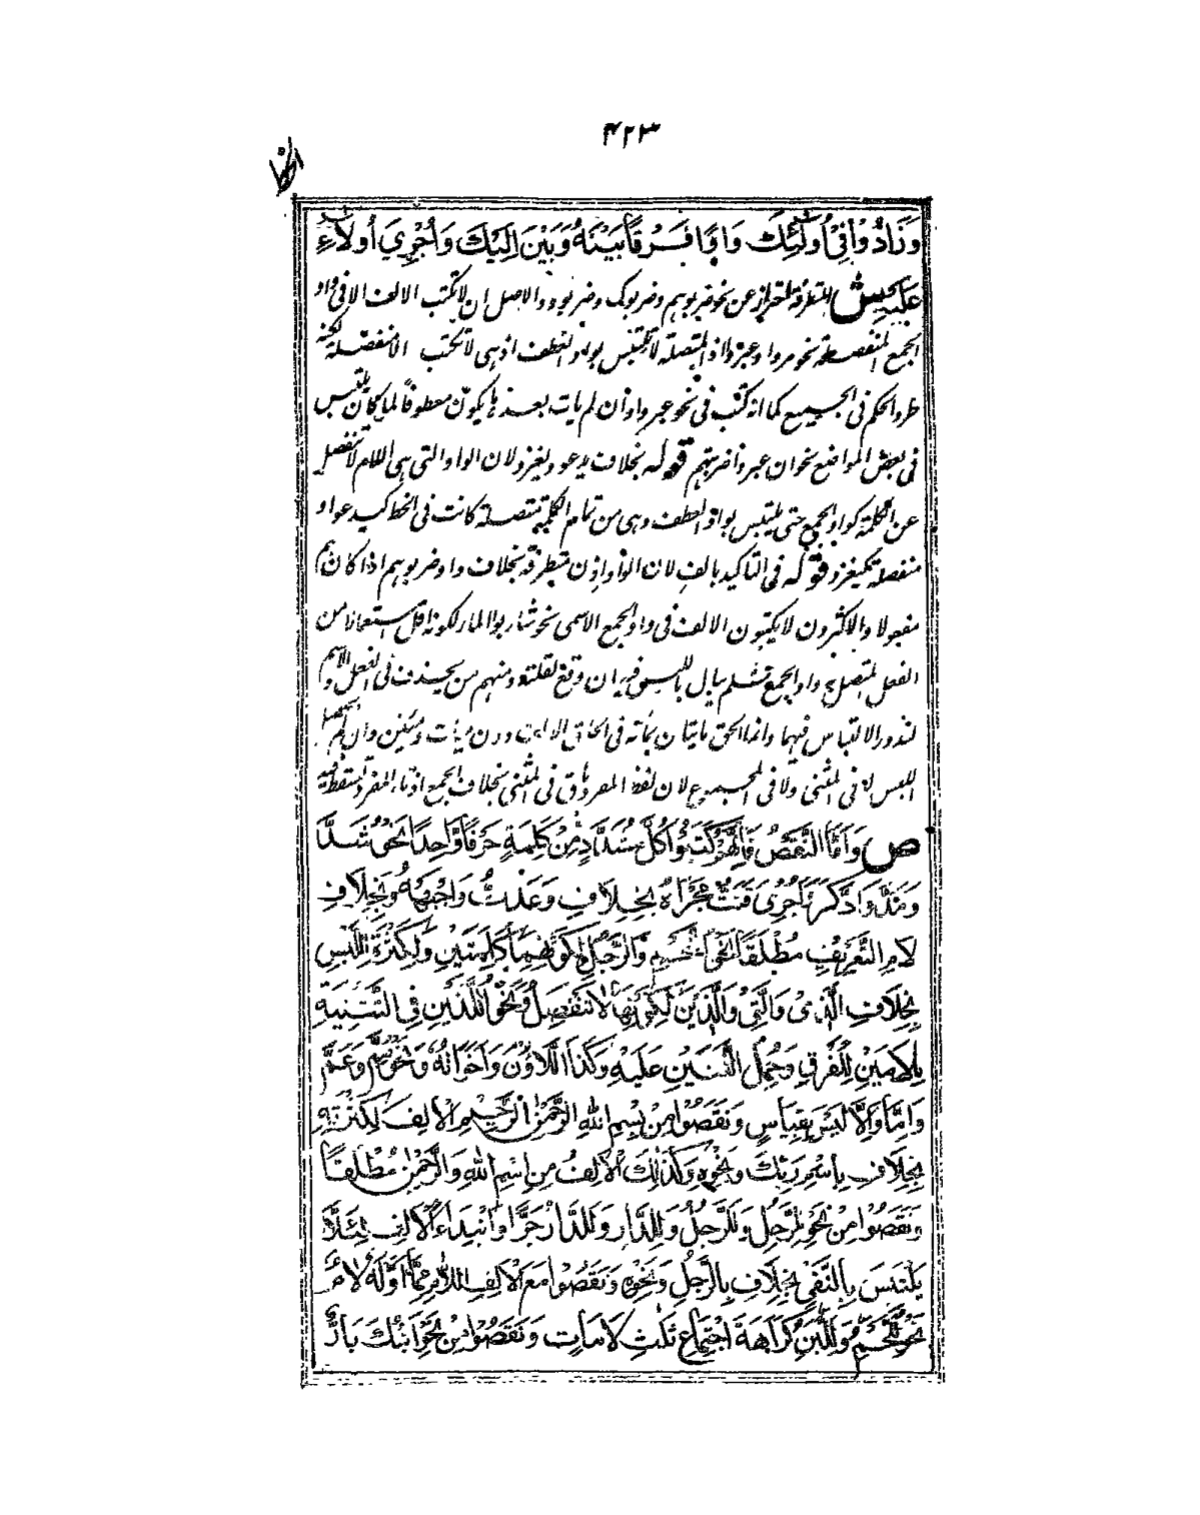 ۴۲۳
الخط
وَزَادُوْا فِیْ اُولٰئِكَ وَاوًا فَرْقًا بَیْنَهٗ وَبَیْنَ اِلَیْكَ وَاُجْرِیَ اُولَاءِ
عَلَیْهِ ش المتطرفة احتراز عن نحو ضربوهم وضربوک وضربوہ والاصل ان لا تکتب الالف الا فی واو
الجمع المنفصلة نحو مروا وعبروا اذ المتصلة لا تلتبس بواو العطف اذ ہی لا تکتب الا منفصلة لکنہ
طرد الحکم فی الجمیع کما انہ کتب فی نحو عبروا وان لم یات بعدہ ما یکون معطوفا لما کان یلتبس
فی بعض المواضع نحو ان عبروا ضربتهم قوله بخلاف یدعو ویغزو لان الواو التی ہی اللام لا تنفصل
عن الکلمة کواو الجمع حتی یلتبس بواو العطف وہی من تمام الکلمة متصلة کانت فی الخط کیدعو او
منفصلة کیغزو قوله فی التاکید بالف لان الواو اذن متطرفة بخلاف واو ضربوہم اذا کان ہم
مفعولا والاکثرون لا یکتبون الالف فی واو الجمع الاسمی نحو شاربوا الماء لکونہ اقل استعمالا من
الفعل المتصل بہ واو الجمع فلم یبال باللبس فیہ ان وقع لقلتہ ومنہم من یحذف فی الفعل والاسم
لندور الالتباس فیہما وانما الحق مایتان بمائة فی الحاق الالف دون مئات ومئین وان لم یحصل
اللبس لا فی المثنی ولا فی المجموع لان لفظ المفرد باق فی المثنی بخلاف الجمع اذ تاء المفرد سقطت فیہ
ص وَاَمَّا النَّقْصُ فَاِنَّهُمْ كَتَبُوْا كُلَّ مُشَدَّدٍ مِنْ كَلِمَةٍ حَرْفًا وَّاحِدًا نَحْوُ شَدَّ
وَمَدَّ وَادَّكَرَ وَاُجْرِیَ قَتَتُّ مُجْرَاهُ بِخِلَافِ وَعَدْتُّ وَاجْبَهْهُ وَبِخِلَافِ
لَامِ التَّعْرِیْفِ مُطْلَقًا نَحْوُ اللَّحْمِ وَالرَّجُلِ لِكَوْنِهِمَا كَلِمَتَیْنِ وَلِكَثْرَةِ اللَّبْسِ
بِخِلَافِ الَّذِیْ وَالَّتِیْ وَالَّذِیْنَ لِكَوْنِهَا لَا تَنْفَصِلُ وَنَحْوُ اللَّذَیْنِ فِی التَّثْنِیَةِ
بِلَامَیْنِ لِلْفَرْقِ وَحُمِلَ اللَّتَیْنِ عَلَیْهِ وَكَذَا اللَّاؤُنَ وَاَخَوَاتُهٗ وَنَحْوُ مِمَّ وَعَمَّ
وَاِمَّا وَاِلَّا لَیْسَ بِقِیَاسٍ وَنَقَصُوْا مِنْ بِسْمِ اللهِ الرَّحْمٰنِ الرَّحِیْمِ الْاَلِفَ لِكَثْرَتِهٖ
بِخِلَافِ بِاسْمِ رَبِّكَ وَنَحْوِهٖ وَكَذٰلِكَ الْاَلِفُ مِنِ اسْمِ اللهِ وَالرَّحْمٰنِ مُطْلَقًا
وَنَقَصُوْا مِنْ نَحْوِ لِلرَّجُلِ وَلَلرَّجُلُ وَلِلدَّارِ وَلَلدَّارُ جَرًّا وَابْتِدَاءً الْاَلِفَ لِئَلَّا
یَلْتَبِسَ بِالنَّفْیِ بِخِلَافِ بِالرَّجُلِ وَنَحْوِهٖ وَنَقَصُوْا مَعَ الْاَلِفِ اللَّامَ مِمَّا اَوَّلُهٗ لَامٌ
نَحْوُ لِلَّحْمِ وَلِلَّبَنِ كَرَاهَةَ اجْتِمَاعِ ثَلٰثِ لَامَاتٍ وَنَقَصُوْا مِنْ نَحْوِ اَبْنُكَ بَارٌّ